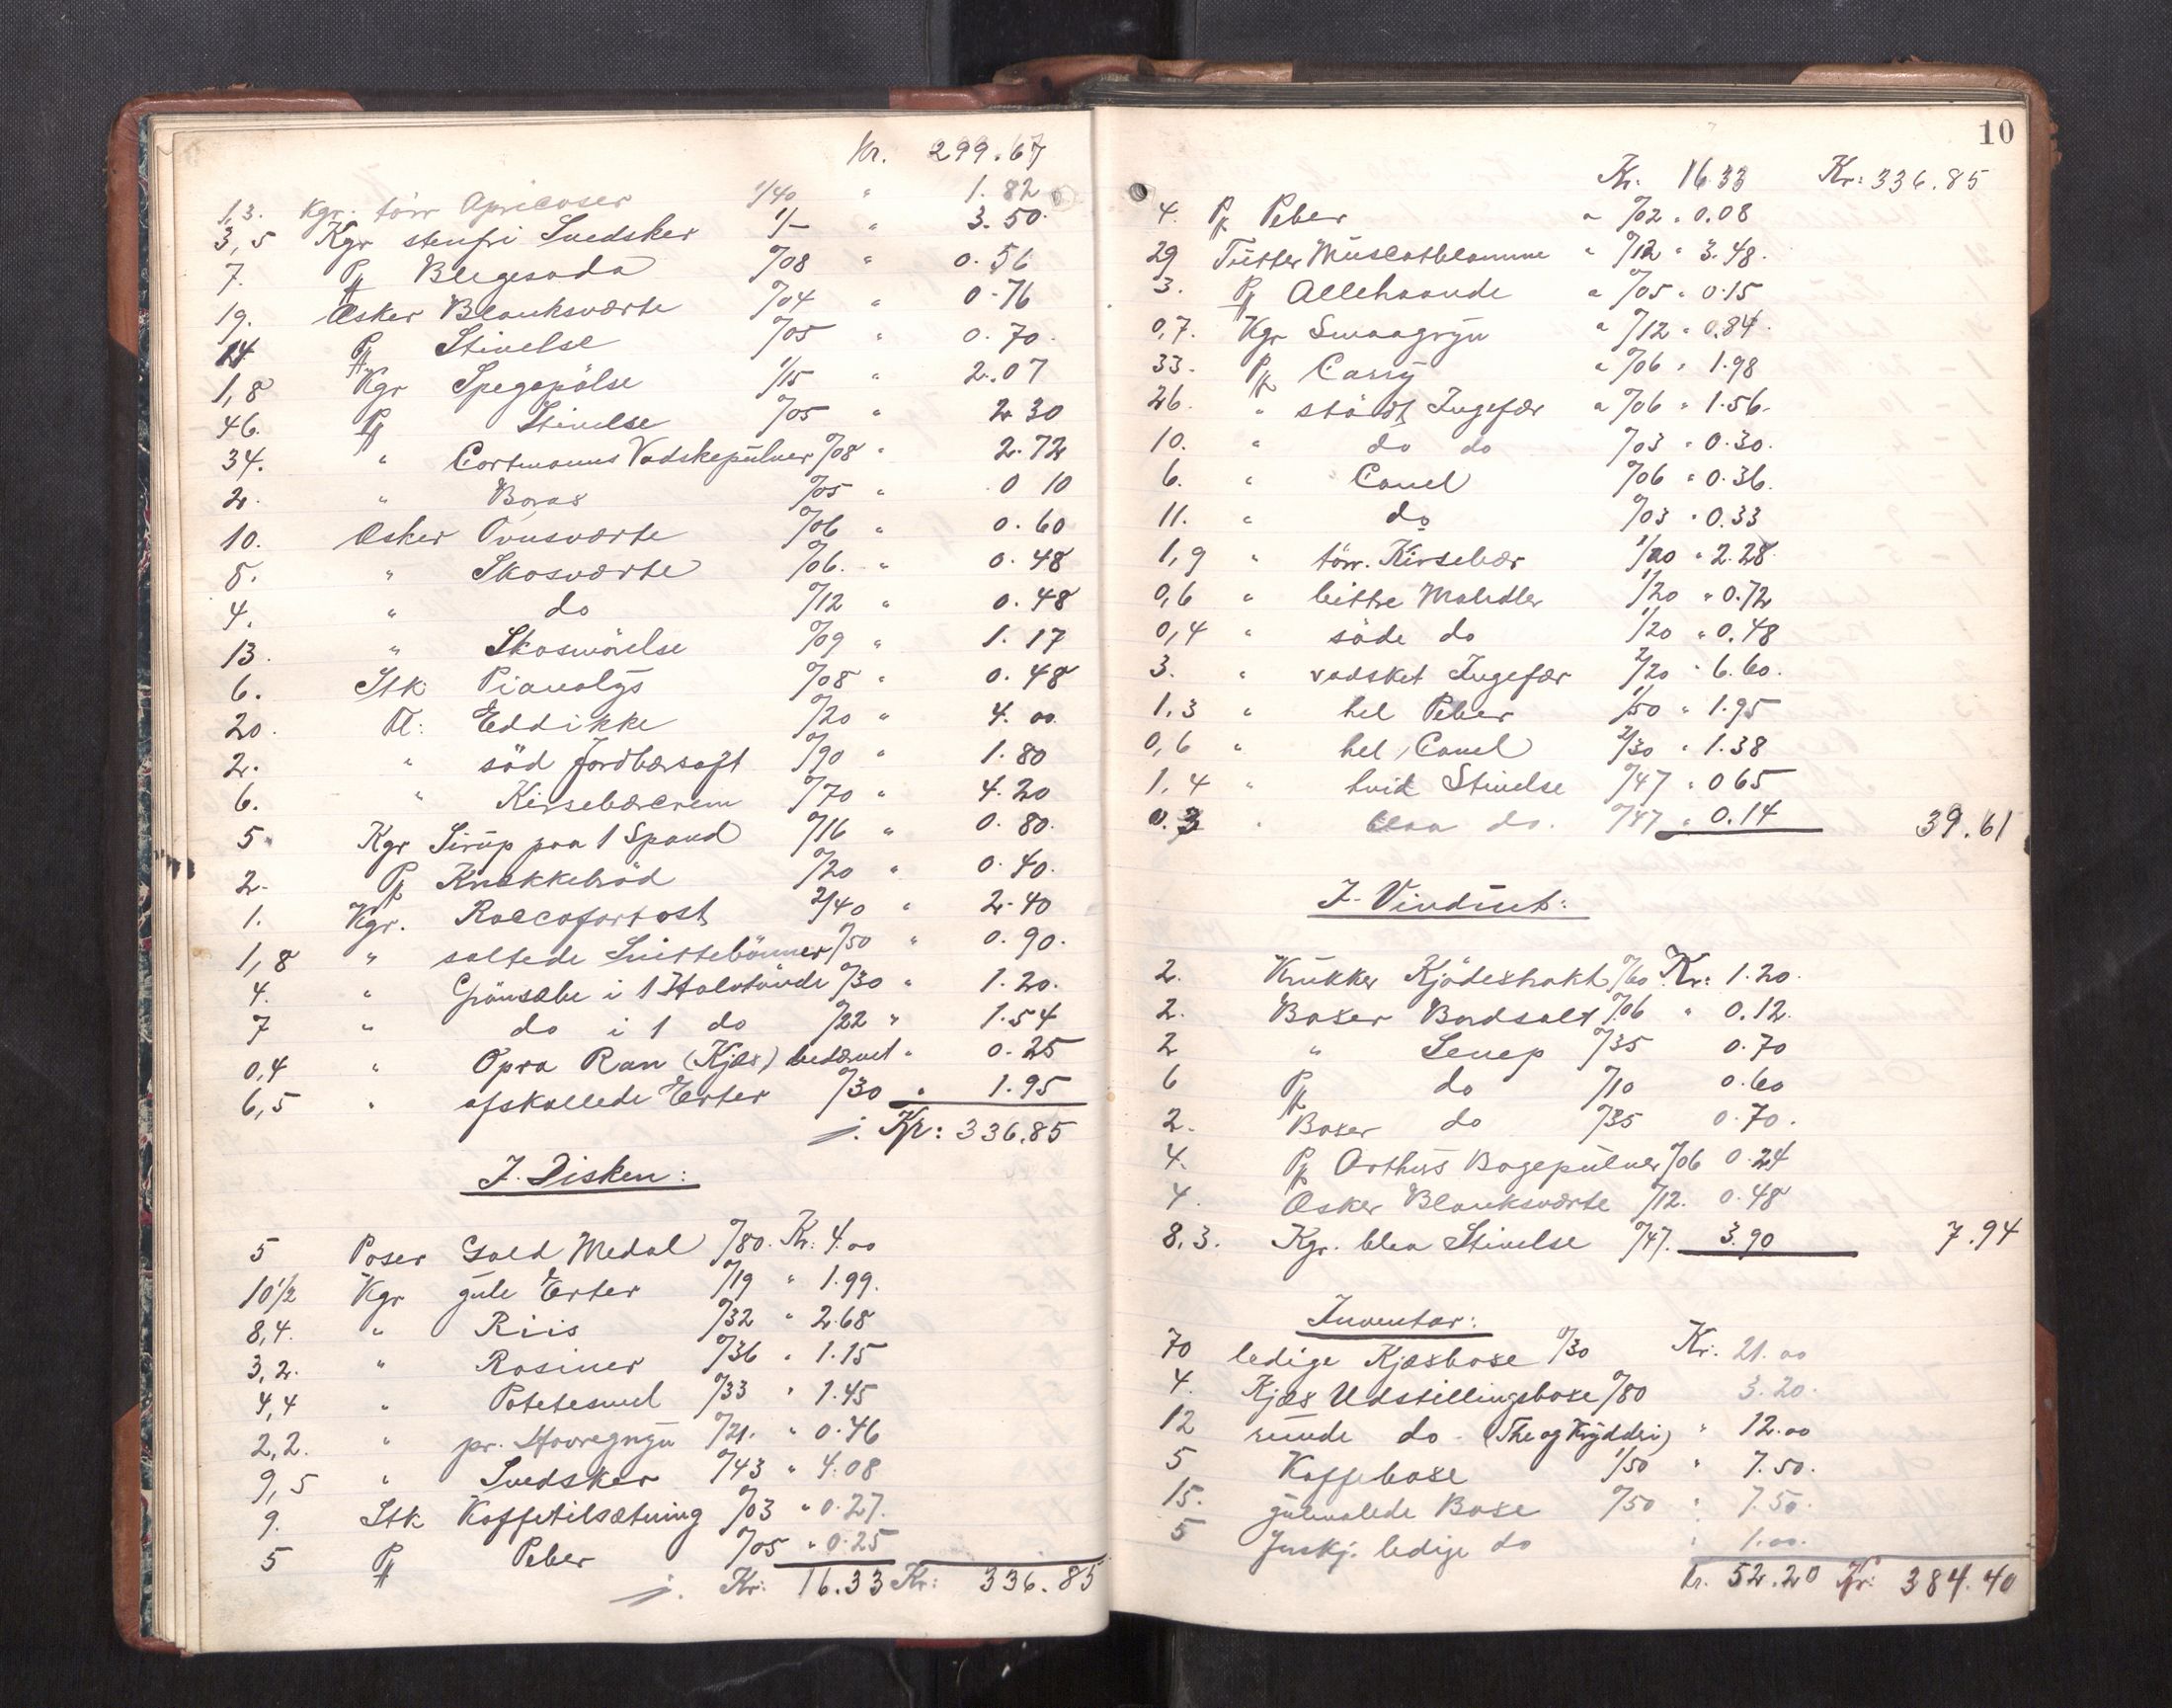 Kr. 299.67
1,3. Kgr. törr Apricoser 1/40 " 1.82
3,5 Kgr stenfri Svedsker 1/- " 3.50.
7. Pk Blegesoda 0/08 " 0.56
19. Æsker Blanksværte 0/04 " 0.76
14 Pk Stivelse 0/05 " 0.70
1,8 Kgr Spegepölse 1/15 " 2.07
46. Pk Stivelse 0/05 " 2.30
34. " Cortmanns Vadskepulver 0/08 " 2.72
2. " Borax 0/05 " 0 10
10. Æsker Ovnsværte 0/06 " 0.60
8. " Skosværte 0/06. " 0.48
4. " do 0/12 " 0.48
13. " Skosmörelse 0/09 " 1.17
6. Stk Pianolys 0/08 " 0.48
20. Fl: Eddikke 0/20 " 4.00
2. " söd Jordbærsaft 0/90 " 1.80
6. " Kirsebærcrem 0/70 " 4.20
5. Kgr Sirup paa 1 Spand 0/16 " 0.80.
2. Pk Knækkebröd 0/20 " 0.40.
1. Kgr. Roccofortost 2/40 " 2.40
1,8 " saltede Snittebönner 0/50 " 0.90.
4. " Grönsæbe i 1 Halvtönde 0/30 " 1.20.
7 " do i 1 do 0/22 " 1.54
0,4 " Opra Ran (Kjæx) bedærvet " 0.25
6,5 " afskallede Erter 0/30 " 1.95
Kr: 336.85
I. Disken:
5 Poser Gold Medal 0/80. Kr: 4.00
10 1/2 Kgr gule Erter 0/19 " 1.99.
8,4. " Riis 0/32 " 2.68
3,2. " Rosiner 0/36 " 1.15
4,4 " Potetesmel 0/33 " 1.45
2,2. " pr. Havregryn 0/21. " 0.46
9,5 " Svedsker 0/43 " 4.08
9. Stk Kaffetilsætning 0/03 " 0.27.
5 Pk Peber 0/05 " 0.25
Kr: 16.33 Kr: 336.85
10
Kr. 16.33 Kr: 336.85
4. Pk Peber a 0/02 " 0.08
29 Tutter Muscatblomme " 0/12 " 3.48.
3. Pk Allehaande a 0/05 " 0.15
0,7. Kgr Smaagryn a 0/12 " 0.84.
33. Pk Carry a 0/06 " 1.98
26. " stödt Ingefær a 0/06 " 1.56.
10. " do do 0/03 " 0.30.
6. " Canel 0/06 " 0.36.
11. " do 0/03 " 0.33
1,9 " törr. Kirsebær 1/20 " 2.28
0,6 " bittre Mandler 1/20 " 0.72
0,4 " söde do 1/20 " 0.48
3. " vadsket Ingefær 2/20 " 6.60.
1,3 " hel Peber 1/50 " 1.95
0,6 " hel Canel 2/30 " 1.38
1,4 " hvid Stivelse 0/47 " 0 65
0.3 " blaa do. 0/47 " 0.14 39.61
I. Vinduet:
2. Krukker Kjödextrakt 0/60 Kr: 1.20.
2. Boxer Bordsalt 0/06 " 0.12.
2 " Senep 0/35 0.70
6 Pk do 0/10 0.60
2. Boxer do 0/35 0.70.
4. Pk Arthurs Bagepulver 0/06 0.24
4. Æsker Blanksværte 0/12. 0.48
8,3. Kgr. blaa Stivelse 0/47. 3.90 7.94
Inventar:
70 ledige Kjæxboxe 0/30 Kr. 21.00
4. Kjæx Udstillingsboxe 0/80 3.20.
12 runde do. (The og Krydderi) " 12.00
5 Kaffeboxe 1/50 " 7.50.
15. gulmalede Boxe 0/50 " 7.50.
5 forskj. ledige do " 1.00.
Kr. 52.20 Kr: 384.40